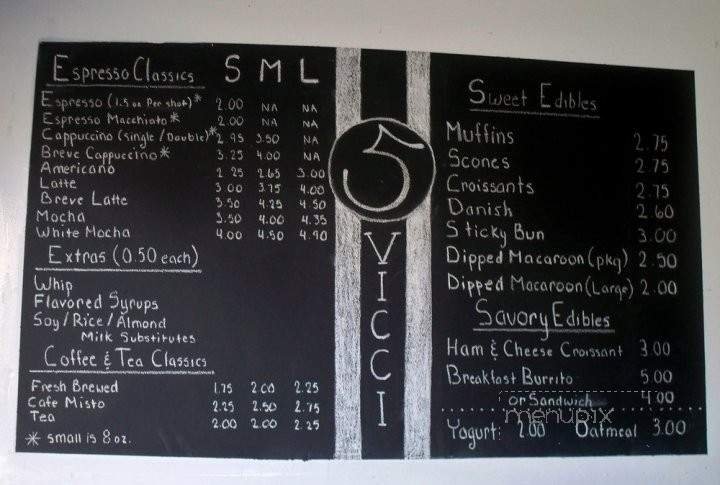 Espresso Classics S M L
Espresso (1.5 oz Per shot)* 2.00 NA NA
Espresso Macchiato* 2.00 NA NA
Cappuccino (single/Double)* 2.95 3.50 NA
Breve Cappuccino* 3.25 4.00 NA
Americano 2.25 2.65 3.00
Latte 3.00 3.75 4.00
Breve Latte 3.50 4.25 4.50
Mocha 3.50 4.00 4.35
White Mocha 4.00 4.50 4.90
Extras (0.50 each)
Whip
Flavored Syrups
Soy/Rice/Almond
Milk Substitutes
Coffee & Tea Classics
Fresh Brewed 1.75 2.00 2.25
Cafe Misto 2.25 2.50 2.75
Tea 2.00 2.00 2.25
* small is 8 oz.
5
VICCI
Sweet Edibles
Muffins 2.75
Scones 2.75
Croissants 2.75
Danish 2.60
Sticky Bun 3.00
Dipped Macaroon (pkg) 2.50
Dipped Macaroon (Large) 2.00
Savory Edibles
Ham & Cheese Croissant 3.00
Breakfast Burrito 5.00
or Sandwich 4.00
menupix
Yogurt: 2.00 Oatmeal 3.00